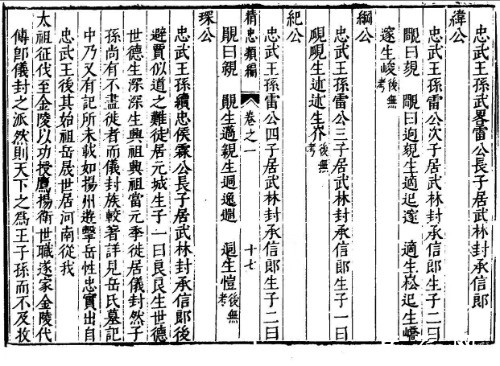 緯公
忠武王孫武畧公長子居武林封承信郎
忠武王孫雷公次子居武林封承信郎生子二曰
生峻後無考
綱公
忠武王孫雷公三子居武林封承信郎生子一曰
生述述生界後無考
紀公
忠武王孫雷公四子居武林封承信郎生子二曰
精忠類編 卷之一 十七
覿曰親 覿生適親生迥逸 迥生愷後無考
琛公
忠武王孫續忠侯霖公長子居武林封承信郎後
避賈似道之難徙居元城生子一曰良良生世德
世德生深深生興祖興祖當元季徙居儀封然子
孫尚有不盡徙者而儀封族較著詳見岳氏墓記
中乃又有記所未載如揚州遊擊岳性忠實出自
忠武王後其始祖岳晟世居河南從我
太祖征伐至金陵以功授鷹揚衛世職遂家金陵代
傳卽儀封之派然則天下之為王子孫而不及攷